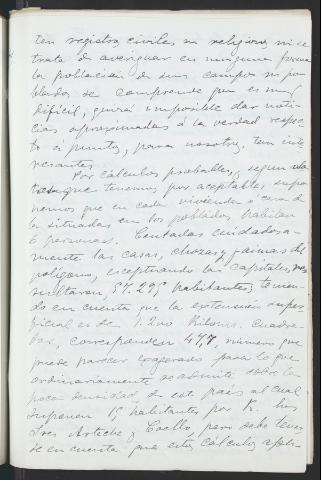 ten registros civiles ni religiosos ni se
trata de averiguar en ninguna forma
la poblacion de sus campos ni po-
blados se comprende que es muy
difícil, quizá imposible dar noti-
cias aproximadas á la verdad respec-
to á puntos, para nosotros, tan inte-
resantes.
Por cálculos probables, segun
que tenemos por aceptables, supo-
nemos que en cada vivienda ó casa de
las situadas en los poblados habitan
6 personas. Contadas cuidadosa-
mente las casas, chozas y jaimas del
polígono, exceptuando las capitales, re-
sultaron, 57.295 habitantes; tenien-
do en cuenta que la extensión super-
ficial es de 1.200 Kiloms. Cuadra-
dos, corresponden 47,7, número que
puede parecer exagerado para lo que
ordinariamente se admite sobre la
poca densidad de este país al cual
suponen 15 habitantes por K. los
Sres Arteche y Coello, pero debe tener-
se en cuenta que estos cálculos